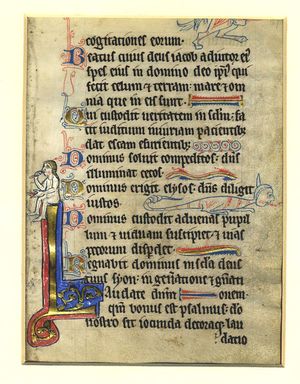 cogitationes eorum.
Beatus cuius deus iacob adiutor ei
spes eius in domino deo ipsi qui
fecit celum et terram: mare et om
nia que in eis sunt.
Qui custodit ueritatem in seclm: fa
cit iudicium iniuriam pacientibus
dat escam esurientibus
Dominus soluit compeditos: dns
illuminat cecos.
Dominus erigit elysos: dns diligit
iustos.
Dominus custodit aduenas pupil
lum et uiduam suscipiet: et uias
peccorum disperdet
Regnabit dominus in secla deus
tuus syon: in generatione et gnati
Laudate dnm onem.
qm bonus est psalmus: deo
nostro sit iocunda decoraque lau
datio